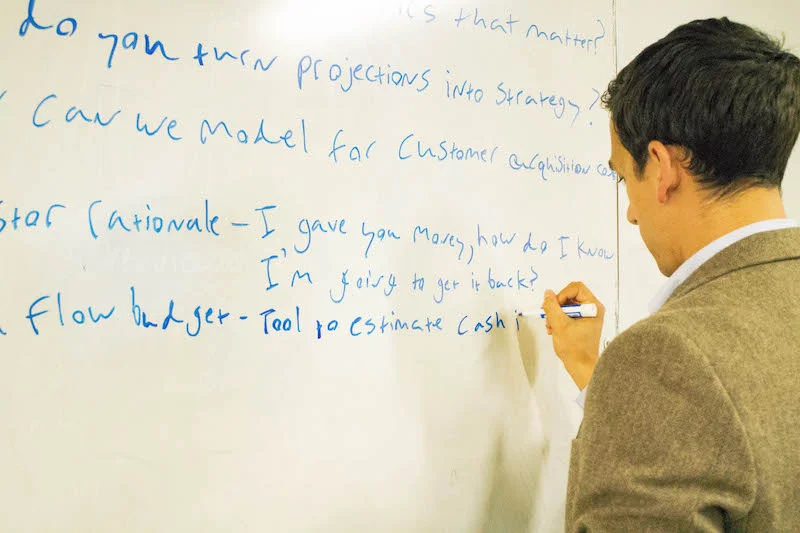 that matter?
do you turn projections into strategy?
Can we model for customer acquisition
rationale - I gave you money, how do I know
I'm going to get it back?
flow budget - Tool to estimate cash i